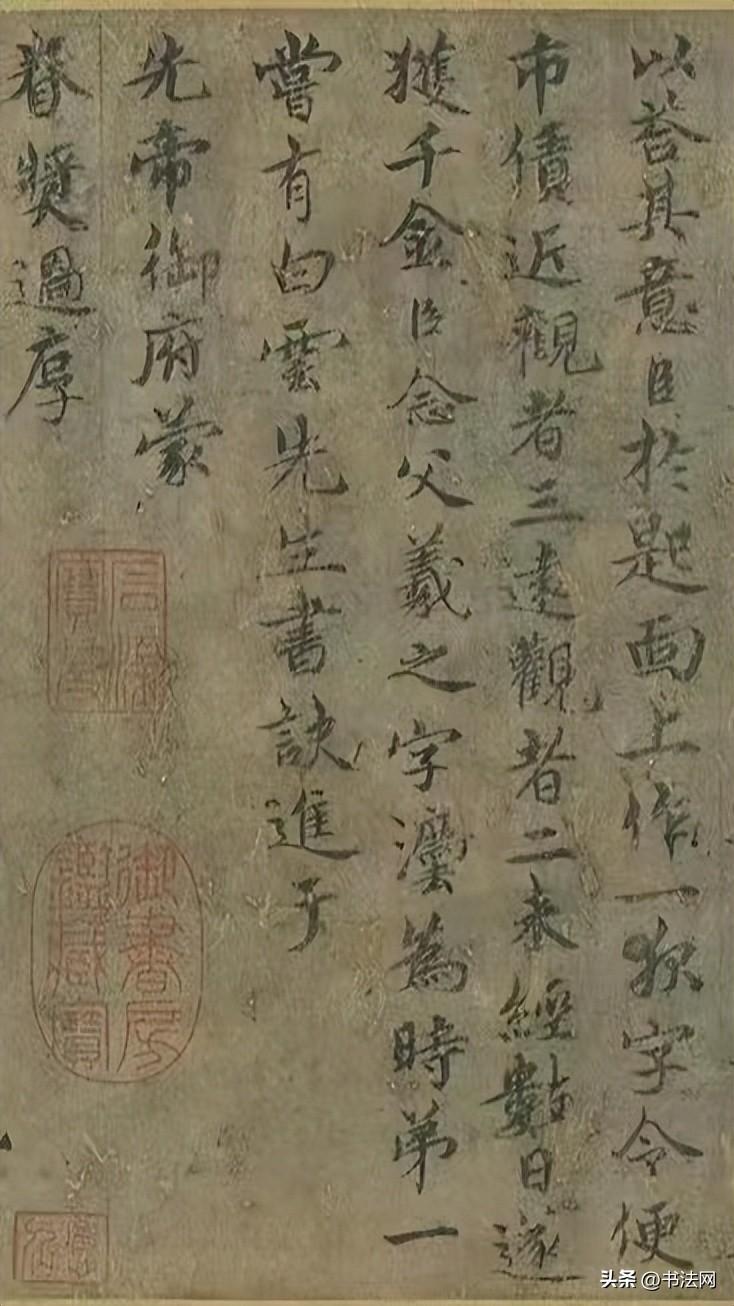 以荅其意臣於匙面上作一狄字令便
市債近觀者三遠觀者二未經數日遂
獲千金臣念父羲之字灋為時第一
嘗有白雲先生書訣進于
先帝御府蒙
眷奬過厚
石渠寶笈
御書房鑒藏寶
头条 @书法网